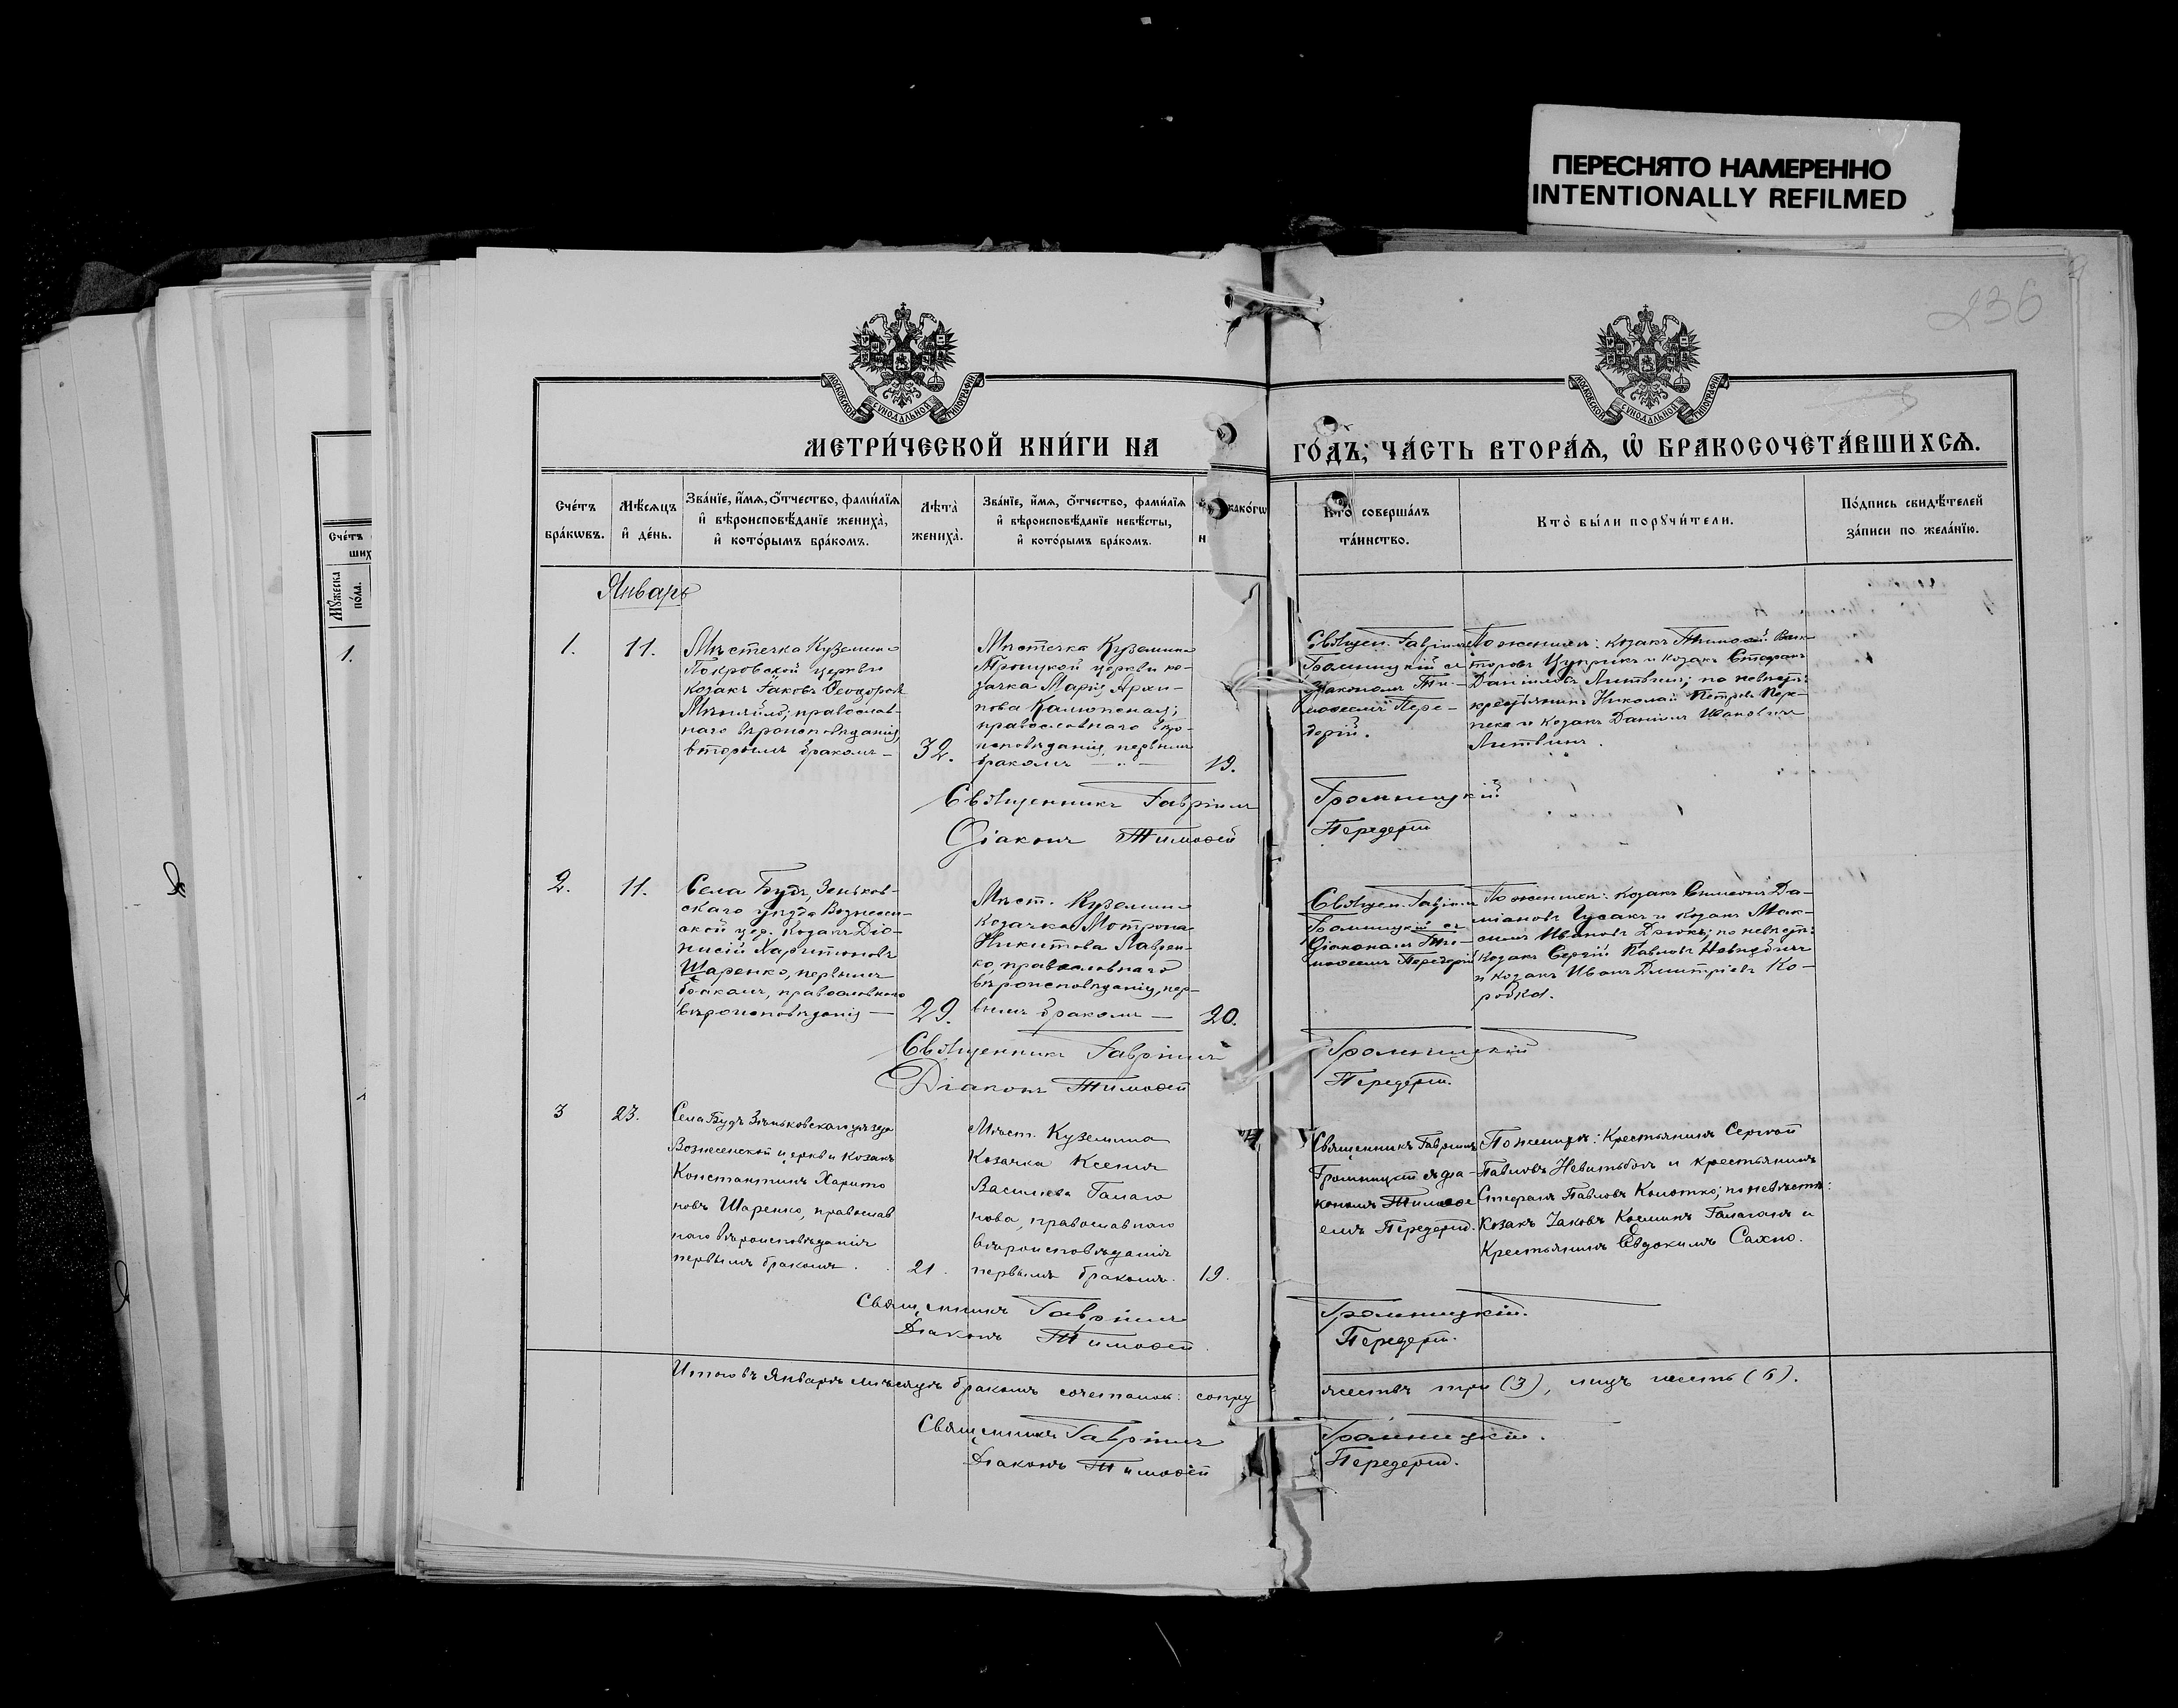 ПЕРЕСНЯТО НАМЕРЕННО
INTENTIONALLY REFILMED
236
МОСКОВСКОЙ СѴНОДАЛЬНОЙ ТИПОГРАФІИ
МОСКОВСКОЙ СѴНОДАЛЬНОЙ ТИПОГРАФІИ
МЕТРИ́ЧЕСКОЙ КНИ́ГИ НА
ГО́ДЪ, ЧА́СТЬ ВТОРА́Ѧ, Ѡ҆ БРАКОСОЧЕТА́ВШИХСѦ.
Сче́тъ
бра́кѡвъ.
Мѣ́сѧцъ
и҆ де́нь.
Зва́нїе, и҆́мѧ, ѻ҆́тчество, фами́лїѧ
и҆ вѣроисповѣ́данїе жениха̀,
и҆ кото́рымъ бра́комъ.
Лѣ́та̀
жениха̀.
Зва́нїе, и҆́мѧ, ѻ҆́тчество, фами́лїѧ
и҆ вѣроисповѣ́данїе невѣ́сты,
и҆ кото́рымъ бра́комъ.
Кто̀ соверша́лъ
та́инство.
Кто̀ бы́ли порꙋчи́тели.
По́дпись свидѣ́телей
за́писи по жела́нїю.
Сче́тъ
ших
Мꙋ́жеска
по́ла.
1.
Январь
1.
11.
Мѣстечка Куземина
Покровской церкви
козакъ Іаковъ Ѳеодоровъ
православ-
наго вѣроисповѣданія,
вторымъ бракомъ —
32.
Мѣстечка Куземина
Троицкой церкви ко-
зачка Марія Архи-
пова
православнаго вѣро-
исповѣданія, первымъ
бракомъ
19.
Священ. Гавріилъ
Громницкій съ
діакономъ Ти-
моѳеемъ Пере-
дерій.
По женихѣ: козакъ Тимоѳей Вик-
торовъ Цуприкъ и козакъ Стефанъ
Даніиловъ Литвинъ; по невѣстѣ:
крестьянинъ Николай Петровъ Пер-
и козакъ Даніилъ Ивановъ
Литвинъ.
Священникъ Гавріилъ
Громницкій
Діаконъ Тимоѳей
Передерій
2.
11.
Села Будъ, Зеньков-
скаго уѣзда Вознесен-
ской цер. козакъ Діо-
нисій Харитоновъ
Шаренко, первымъ
бракомъ, православнаго
вѣроисповѣданія —
29.
Мѣст. Куземина
козачка Мотрона
Никитова Лаврен-
ко, православнаго
вѣроисповѣданія, пер-
вымъ бракомъ —
20.
Священ. Гавріилъ
Громницкій съ
діакономъ Ти-
моѳеемъ Передерій
По женихѣ: козакъ Симеонъ Да-
міановъ Гусакъ и козакъ Мак-
симъ Ивановъ по невѣстѣ:
козакъ Сергій Павловъ
и козакъ Иванъ Димитріевъ Ко-
робка.
Священникъ Гавріилъ
Громницкій
Діаконъ Тимоѳей
Передерій.
3
23.
Села Будъ Зѣньковскаго уѣзда
Вознесенской церкви козакъ
Константинъ Харито
новъ Шаренко, православ
наго вѣроисповѣданія
первымъ бракомъ.
21.
Мѣст. Куземина
Козачка Ксенія
Василіева Галага
нова, православнаго
вѣроисповѣданія
первымъ бракомъ.
19.
Священникъ Гавріилъ
Громницкій съ діа-
кономъ Тимоѳе
емъ Передерій.
По женихѣ: Крестьянинъ Сергѣй
Павловъ и крестьянинъ
Стефанъ Павловъ по невѣстѣ:
Козакъ Іаковъ Космин Галаганъ и
Крестьянинъ Евдокимъ Сахно.
Священникъ Гавріилъ
Громницкій.
Діаконъ Тимоѳей
Передерій.
Итого въ Январѣ мѣсяцѣ бракомъ сочеталось: супру
жествъ три (3), лицъ шесть (6).
Священникъ Гавріилъ
Громницкій.
Діаконъ Тимоѳей
Передерій.